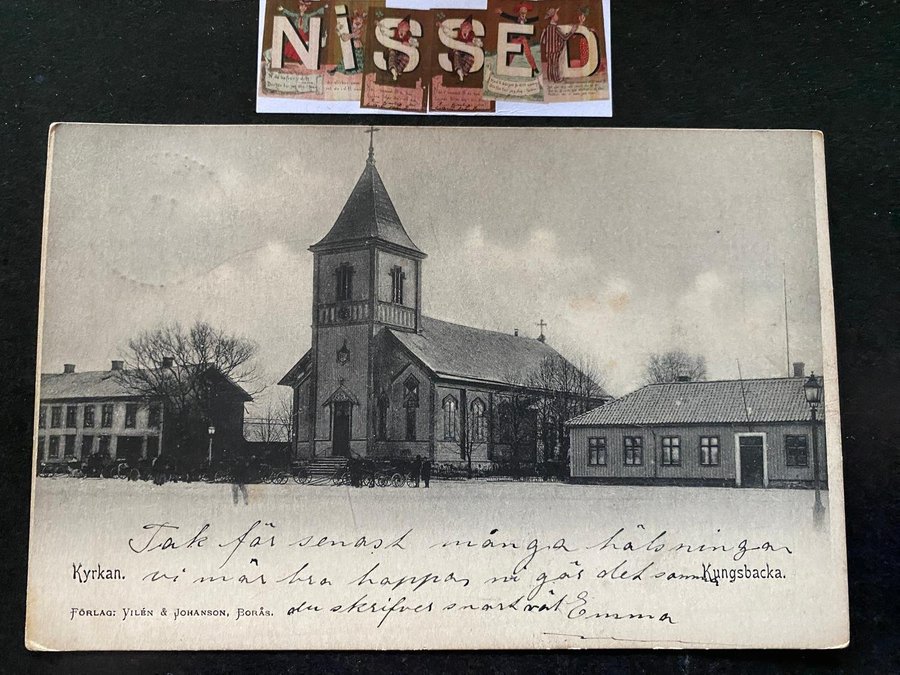 NiSSED
Tak får senast många hälsningar
Kyrkan. vi mår bra happas ni gör det samma Kungsbacka.
FÖRLAG: VILÉN & JOHANSON, BORÅS. du skrifver snart Emma